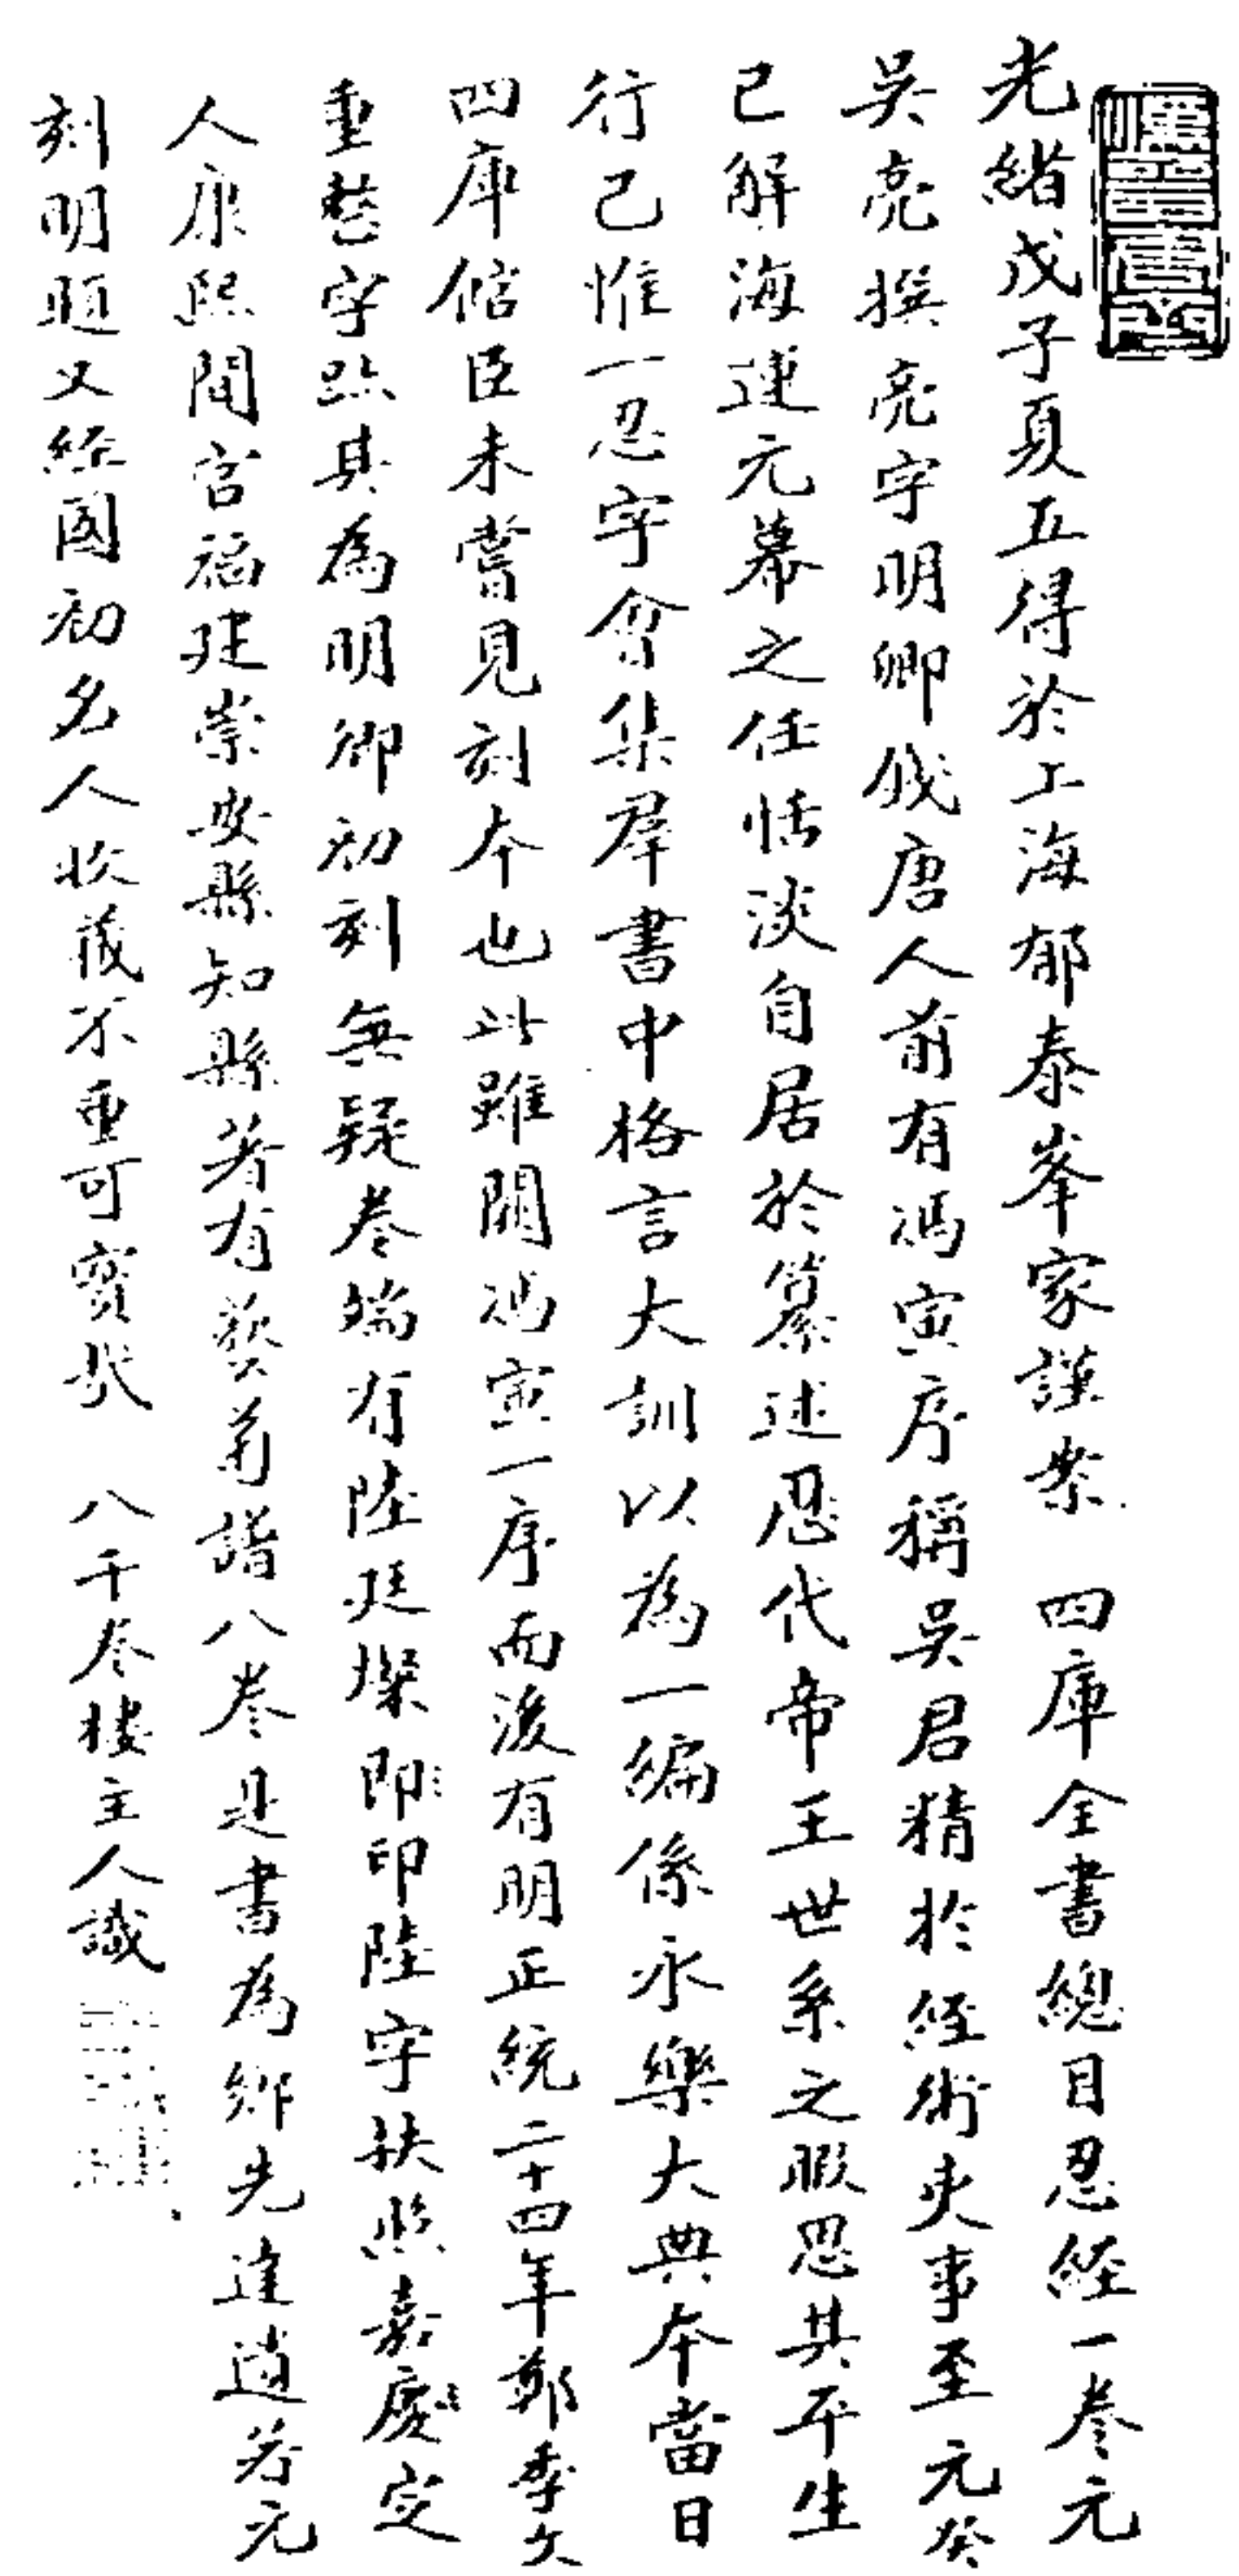 光緒戊子夏五得於上海郁泰峯家謹案 四庫全書總目忍經一卷元
吳亮撰亮字明卿錢唐人前有馮寅序稱吳君精於經術史事至元癸
巳解海運元幕之任恬淡自居於纂述忍代帝王世系之暇思其平生
行己惟一忍字會集羣書中格言大訓以為一編係永樂大典本當日
四庫館臣未嘗見刻本也此雖闕馮寅一序而後有明正統二十四年鄭季文
重整字跡其為明卿初刻無疑卷端有陸廷燦即印陸字扶照嘉慶定
人康熙間官福建崇安縣知縣著有藝菊譜八卷是書為鄉先達遺著元
刻明題又經國初名人收藏不重可寶哉 八千卷樓主人識